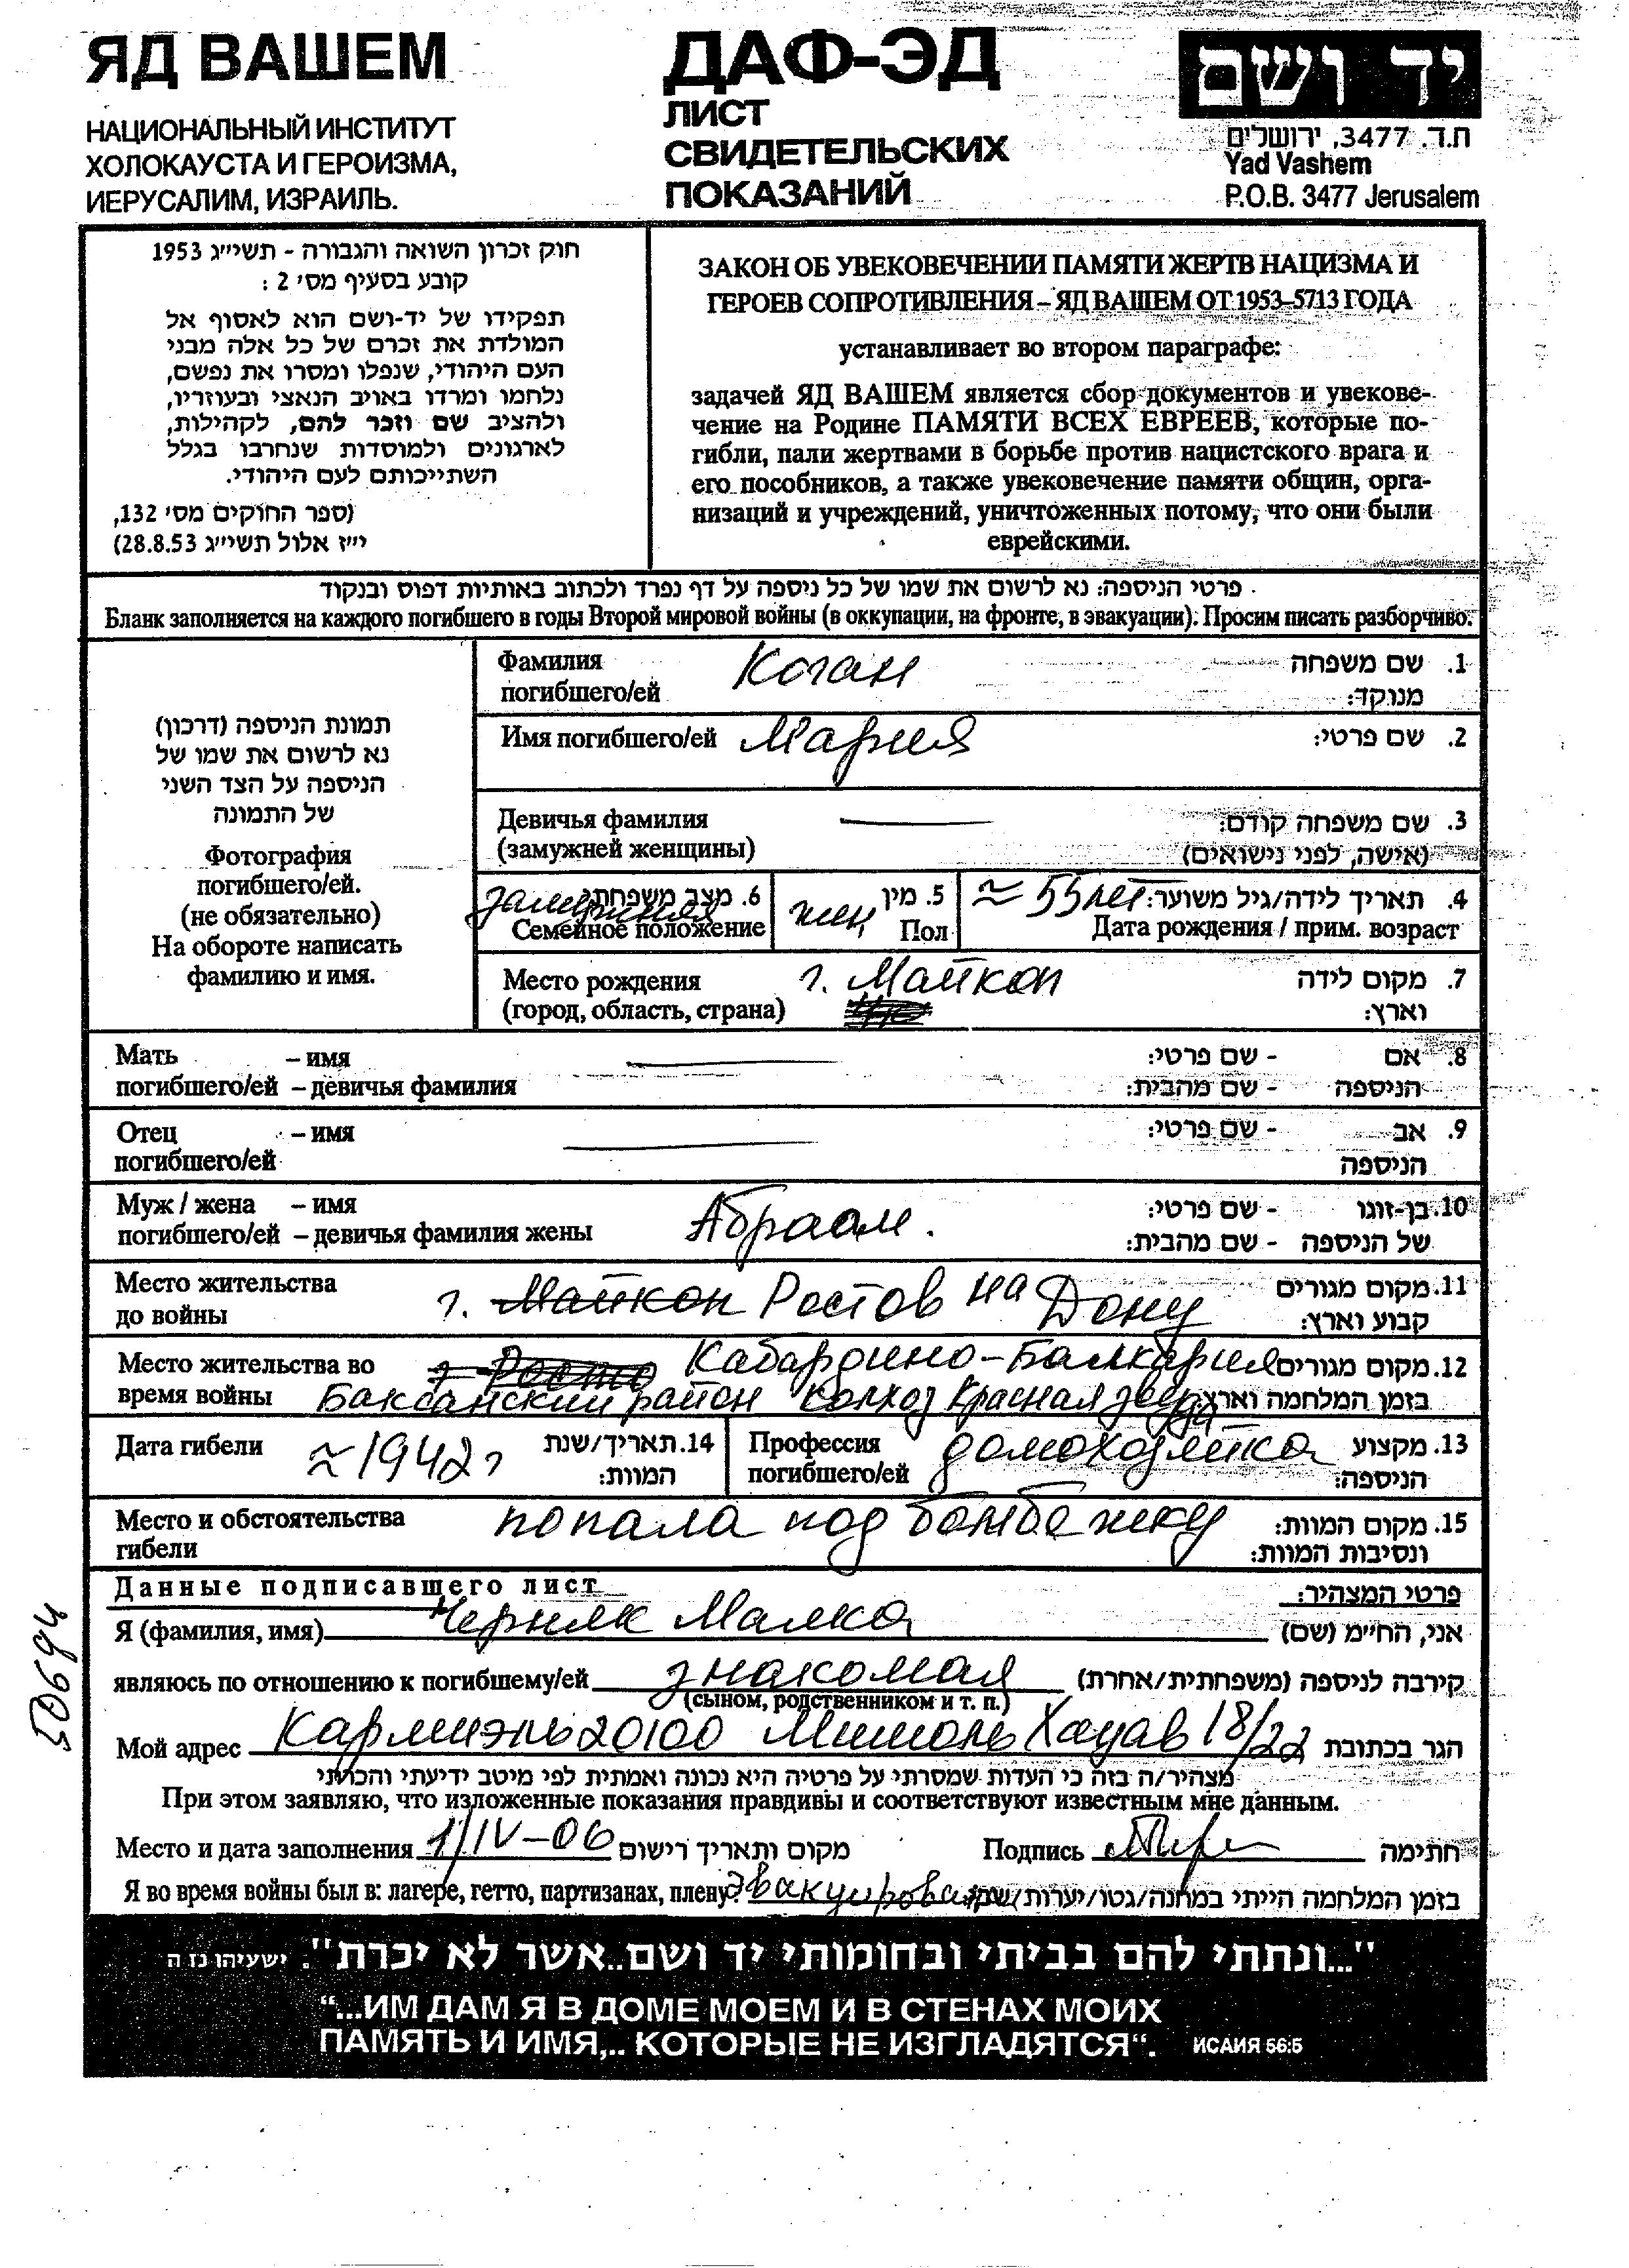 ЯД ВАШЕМ
НАЦИОНАЛЬНЫЙ ИНСТИТУТ
ХОЛОКАУСТА И ГЕРОИЗМА,
ИЕРУСАЛИМ, ИЗРАИЛЬ.
ДАФ-ЭД
ЛИСТ
СВИДЕТЕЛЬСКИХ
ПОКАЗАНИЙ
יד ושם
ת.ד. 3477, ירושלים
Yad Vashem
P.O.B. 3477 Jerusalem
חוק זכרון השואה והגבורה - תשי״ג 1953
קובע בסעיף מס׳ 2 :
תפקידו של יד-ושם הוא לאסוף אל
המולדת את זכרם של כל אלה מבני
העם היהודי, שנפלו ומסרו את נפשם,
נלחמו ומרדו באויב הנאצי ובעוזריו,
ולהציב שם וזכר להם, לקהילות,
לארגונים ולמוסדות שנחרבו בגלל
השתייכותם לעם היהודי.
(ספר החוקים מס׳ 132,
י״ז אלול תשי״ג 28.8.53)
ЗАКОН ОБ УВЕКОВЕЧЕНИИ ПАМЯТИ ЖЕРТВ НАЦИЗМА И
ГЕРОЕВ СОПРОТИВЛЕНИЯ – ЯД ВАШЕМ ОТ 1953–5713 ГОДА
устанавливает во втором параграфе:
задачей ЯД ВАШЕМ является сбор документов и увекове-
чение на Родине ПАМЯТИ ВСЕХ ЕВРЕЕВ, которые по-
гибли, пали жертвами в борьбе против нацистского врага и
его пособников, а также увековечение памяти общин, орга-
низаций и учреждений, уничтоженных потому, что они были
еврейскими.
פרטי הניספה: נא לרשום את שמו של כל ניספה על דף נפרד ולכתוב באותיות דפוס ובנקוד
Бланк заполняется на каждого погибшего в годы Второй мировой войны (в оккупации, на фронте, в эвакуации). Просим писать разборчиво.
תמונת הניספה (דרכון)
נא לרשום את שמו של
הניספה על הצד השני
של התמונה
Фотография
погибшего/ей.
(не обязательно)
На обороте написать
фамилию и имя.
Фамилия Коган 1. שם משפחה
погибшего/ей מנוקד:
Имя погибшего/ей Мария 2. שם פרטי:
Девичья фамилия 3. שם משפחה קודם:
(замужней женщины) (אישה, לפני נישואים)
замужняя 6. מצב משפחתי жен, 5. מין ≈ 55 лет 4. תאריך לידה/גיל משוער:
Семейное положение Пол Дата рождения / прим. возраст
Место рождения г. Майкоп 7. מקום לידה
(город, область, страна) וארץ:
Мать – имя 8. אם - שם פרטי:
погибшего/ей – девичья фамилия הניספה - שם מהבית:
Отец – имя 9. אב - שם פרטי:
погибшего/ей הניספה
Муж / жена – имя Абраам. 10. בן-זוגו - שם פרטי:
погибшего/ей – девичья фамилия жены של הניספה - שם מהבית:
Место жительства г. Майкоп Ростов на Дону 11. מקום מגורים
до войны קבוע וארץ:
Место жительства во Кабардино-Балкария 12. מקום מגורים
время войны Баксанский район Колхоз Красная звезда בזמן המלחמה וארץ
Дата гибели ≈1942г 14. תאריך/שנת המוות:
Профессия погибшего/ей домохозяйка 13. מקצוע הניספה:
Место и обстоятельства попала под бомбежку 15. מקום המוות:
гибели ונסיבות המוות:
Данные подписавшего лист פרטי המצהיר:
Я (фамилия, имя) Черняк Малка אני, החי״מ (שם)
являюсь по отношению к погибшему/ей знакомая קירבה לניספה (משפחתית/אחרת)
(сыном, родственником и т. п.)
Мой адрес Кармиэль 20100 Мишоль Хацав 18/22 הגר בכתובת
מצהיר/ה בזה כי העדות שמסרתי על פרטיה היא נכונה ואמתית לפי מיטב ידיעתי והכרתי
При этом заявляю, что изложенные показания правдивы и соответствуют известным мне данным.
Место и дата заполнения 1/IV-06 מקום ותאריך רישום Подпись חתימה
Я во время войны был в: лагере, гетто, партизанах, плену? בזמן המלחמה הייתי במחנה/גטו/יערות/שבי
50694
"...ונתתי להם בביתי ובחומותי יד ושם..אשר לא יכרת". ישעיהו נז ה
“...ИМ ДАМ Я В ДОМЕ МОЕМ И В СТЕНАХ МОИХ
ПАМЯТЬ И ИМЯ,.. КОТОРЫЕ НЕ ИЗГЛАДЯТСЯ“. ИСАИЯ 56:5